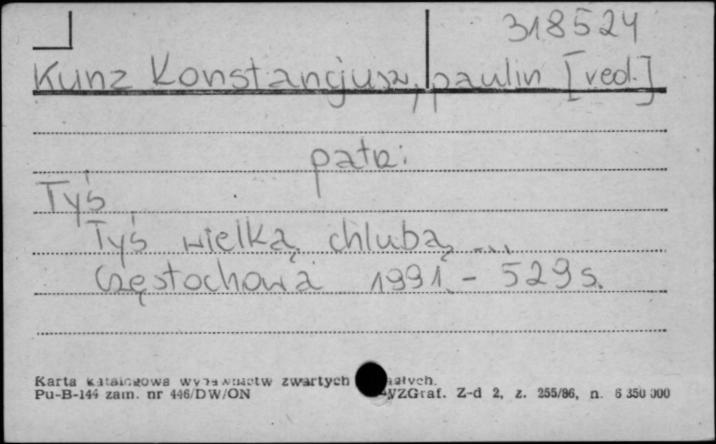 318524
Kunz Konstancjusz, paulin [red.]
patrz:
Tyś
Tyś wielką chlubą ...
Częstochowa 1991. - 529 s.
Karta katalogowa wydawnictw zwartych
Pu-B-144 zam. nr 446/DW/ON
Z-d 2, z. 255/86, n. 6 350 000